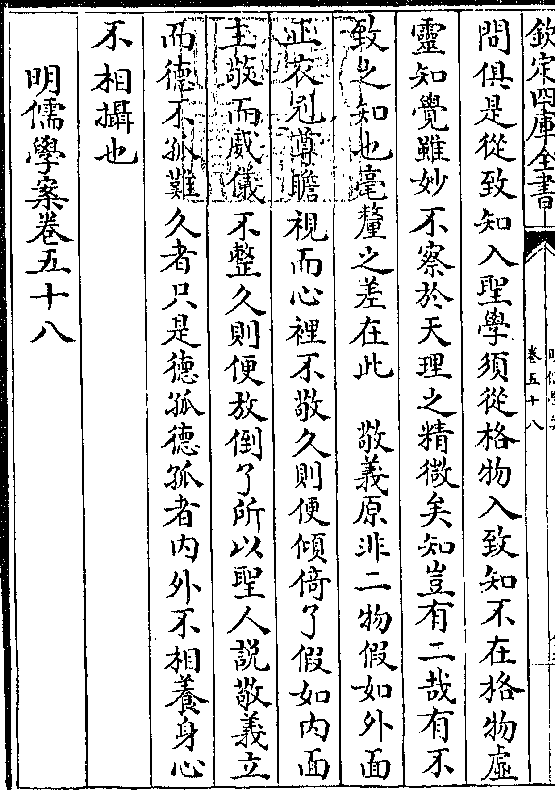 欽定四庫全書
卷五十八
問俱是從致知入聖學須從格物入致知不在格物虛
靈知覺雖妙不察於天理之精微矣知豈有二哉有不
致之知也毫釐之差在此　敬義原非二物假如外面
正衣冠尊瞻視而心裡不敬久則便傾倚了假如内面
主敬而威儀不整久則便放倒了所以聖人説敬義立
而德不孤難久者只是德孤德孤者内外不相養身心
不相攝也
明儒學案卷五十八